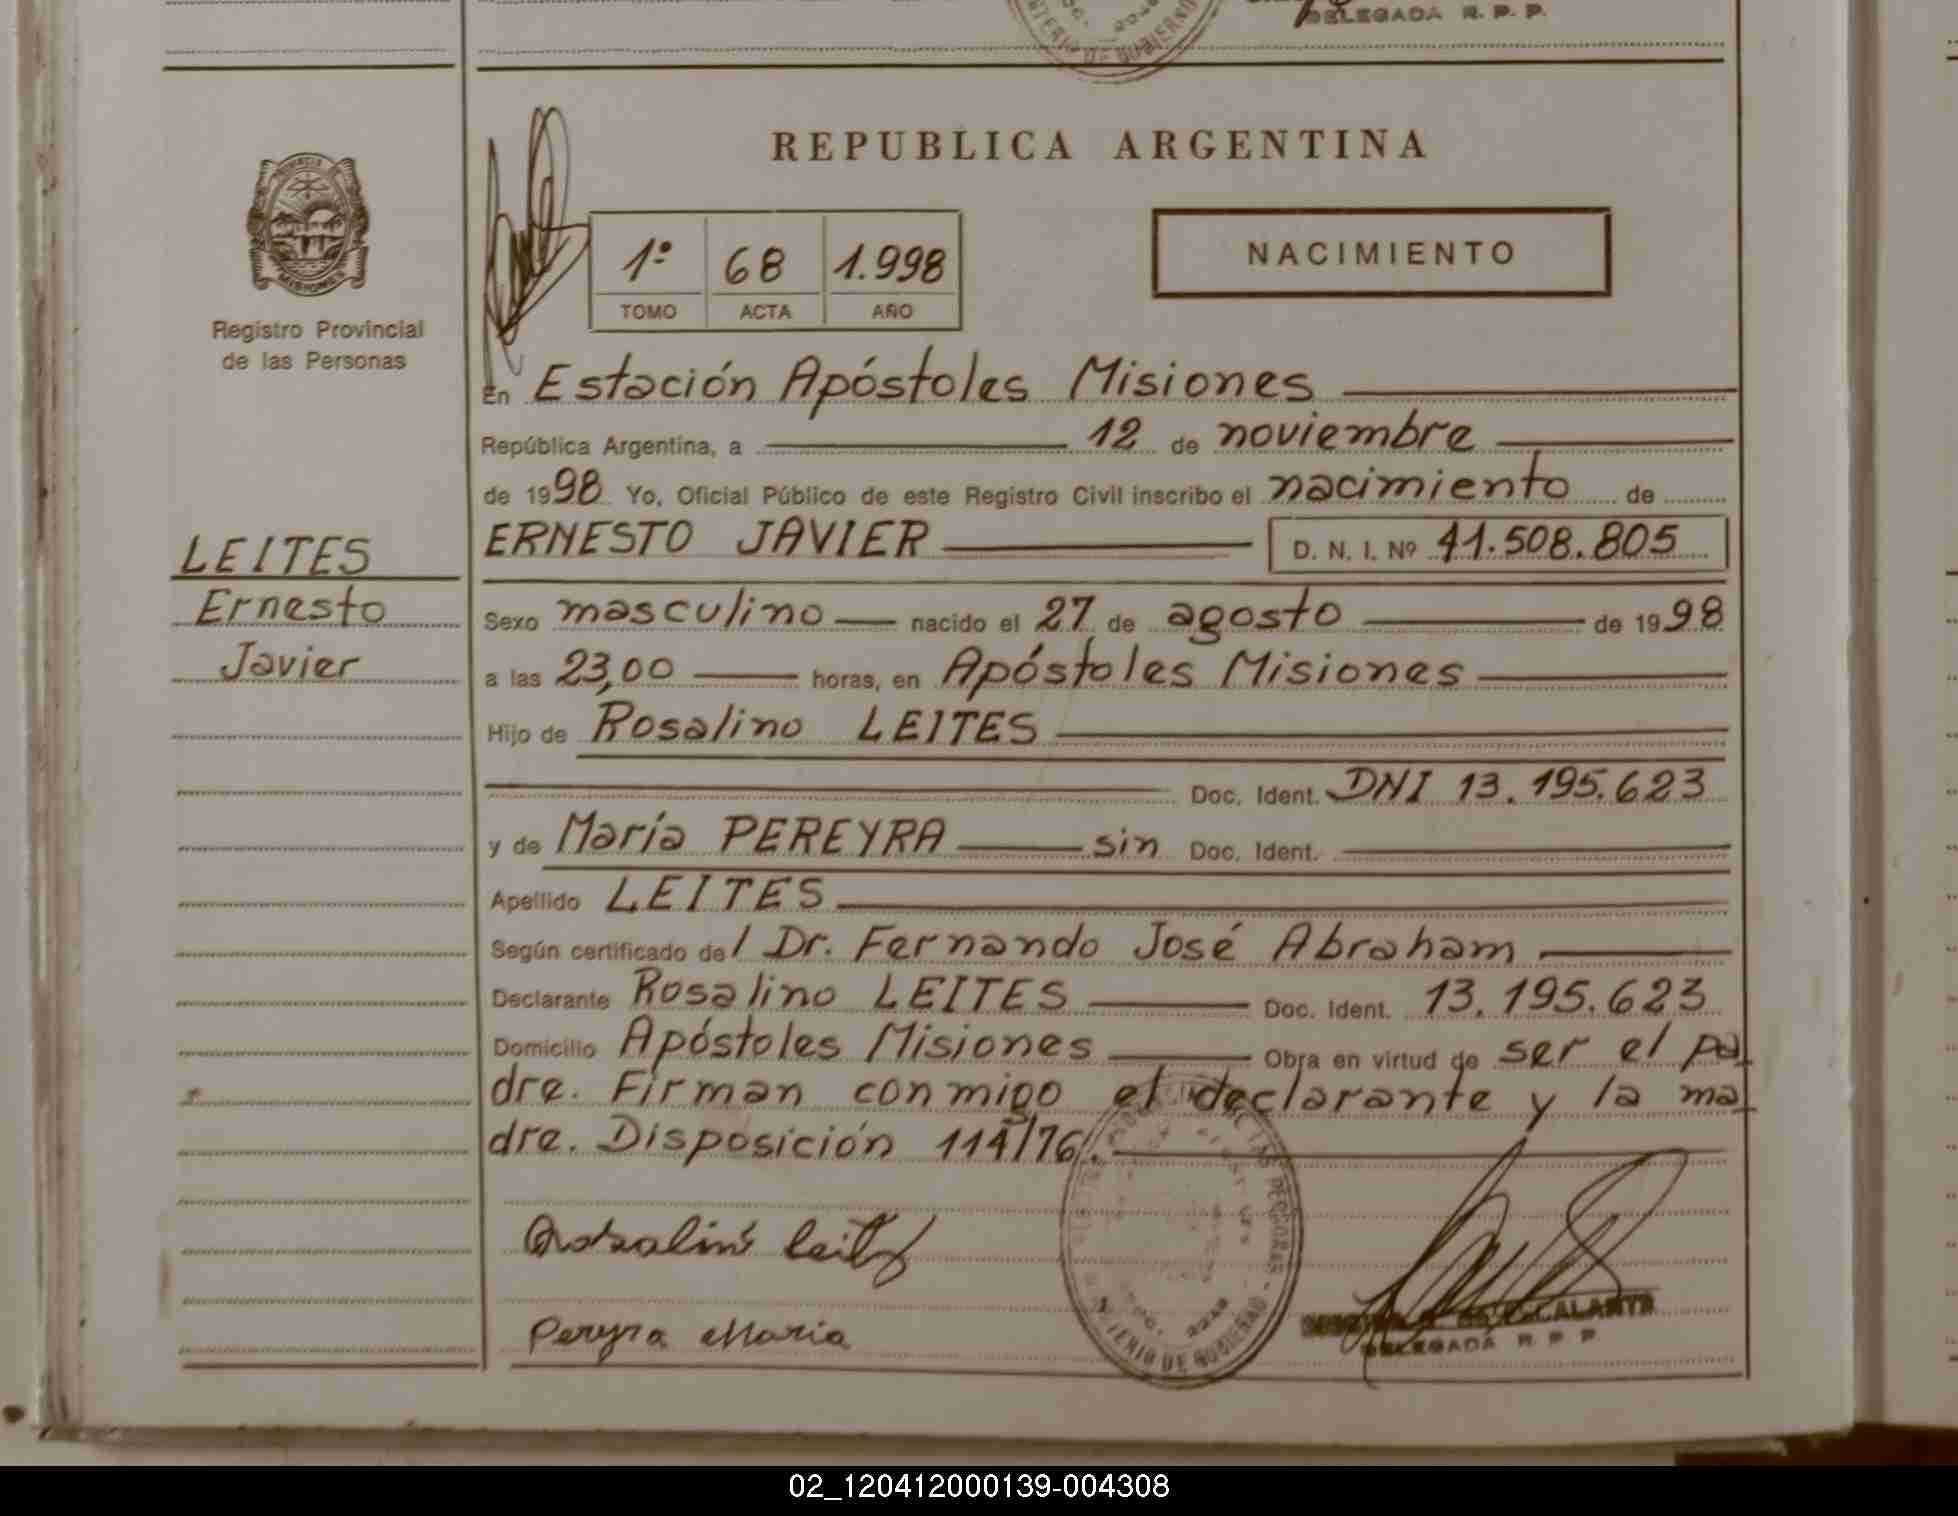 DELEGADA R. P. P.
REPUBLICA ARGENTINA
PROVINCIA
MISIONES
Registro Provincial
de las Personas
1º 68 1.998
TOMO ACTA AÑO
NACIMIENTO
En Estación Apóstoles Misiones
República Argentina, a 12 de noviembre
de 1998 Yo, Oficial Público de este Registro Civil inscribo el nacimiento de
LEITES
Ernesto
Javier
ERNESTO JAVIER D. N. I. Nº 41.508.805
Sexo masculino nacido el 27 de agosto de 1998
a las 23,00 horas, en Apóstoles Misiones
Hijo de Rosalino LEITES
Doc. Ident. DNI 13.195.623
y de María PEREYRA sin Doc. Ident.
Apellido LEITES
Según certificado de/ Dr. Fernando José Abraham
Declarante Rosalino LEITES Doc. Ident. 13.195.623
Domicilio Apóstoles Misiones Obra en virtud de ser el pa
dre. Firman conmigo el declarante y la ma
dre. Disposición 114/76.
Pereyra Maria
DE GOBIERNO
DELEGADA R P P
02_120412000139-004308